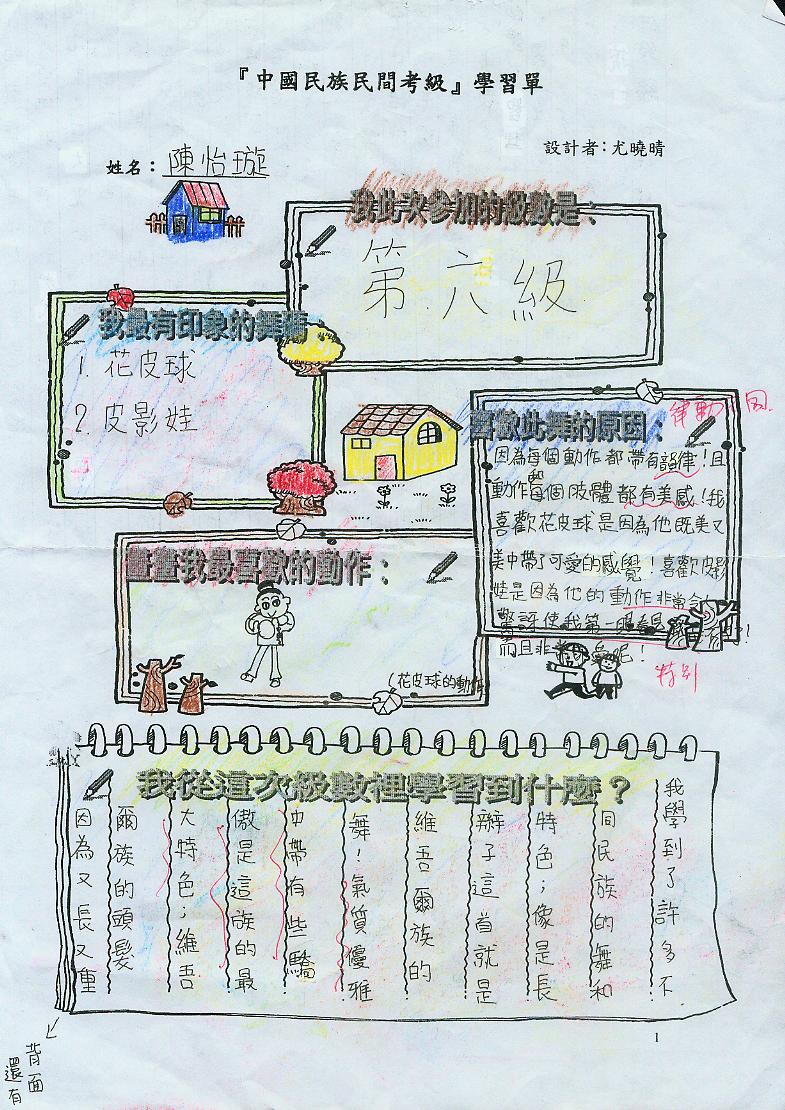 『中國民族民間考級』學習單
設計者:尤曉晴
姓名:陳怡璇
我此次參加的級數是:
第六級
我最有印象的舞碼
1. 花皮球
2. 皮影娃
喜歡此舞的原因:
律動
因為每個動作都帶有韻律!且
動作每個肢體都有美感!我
喜歡花皮球是因為他既美又
美中帶了可愛的感覺!喜歡皮影
娃是因為他的動作非常
驚訝使我第一眼
而且非 愛呢!
特別
畫畫我最喜歡的動作:
(花皮球的動作
我從這次級數裡學習到什麼?
我學到了許多不
同民族的舞和
特色;像是長
辮子這首就是
維吾爾族的
舞!氣質優雅
中帶有些驕
傲是這族的最
大特色;維吾
爾族的頭髮
因為又長又重
背面
還有
1